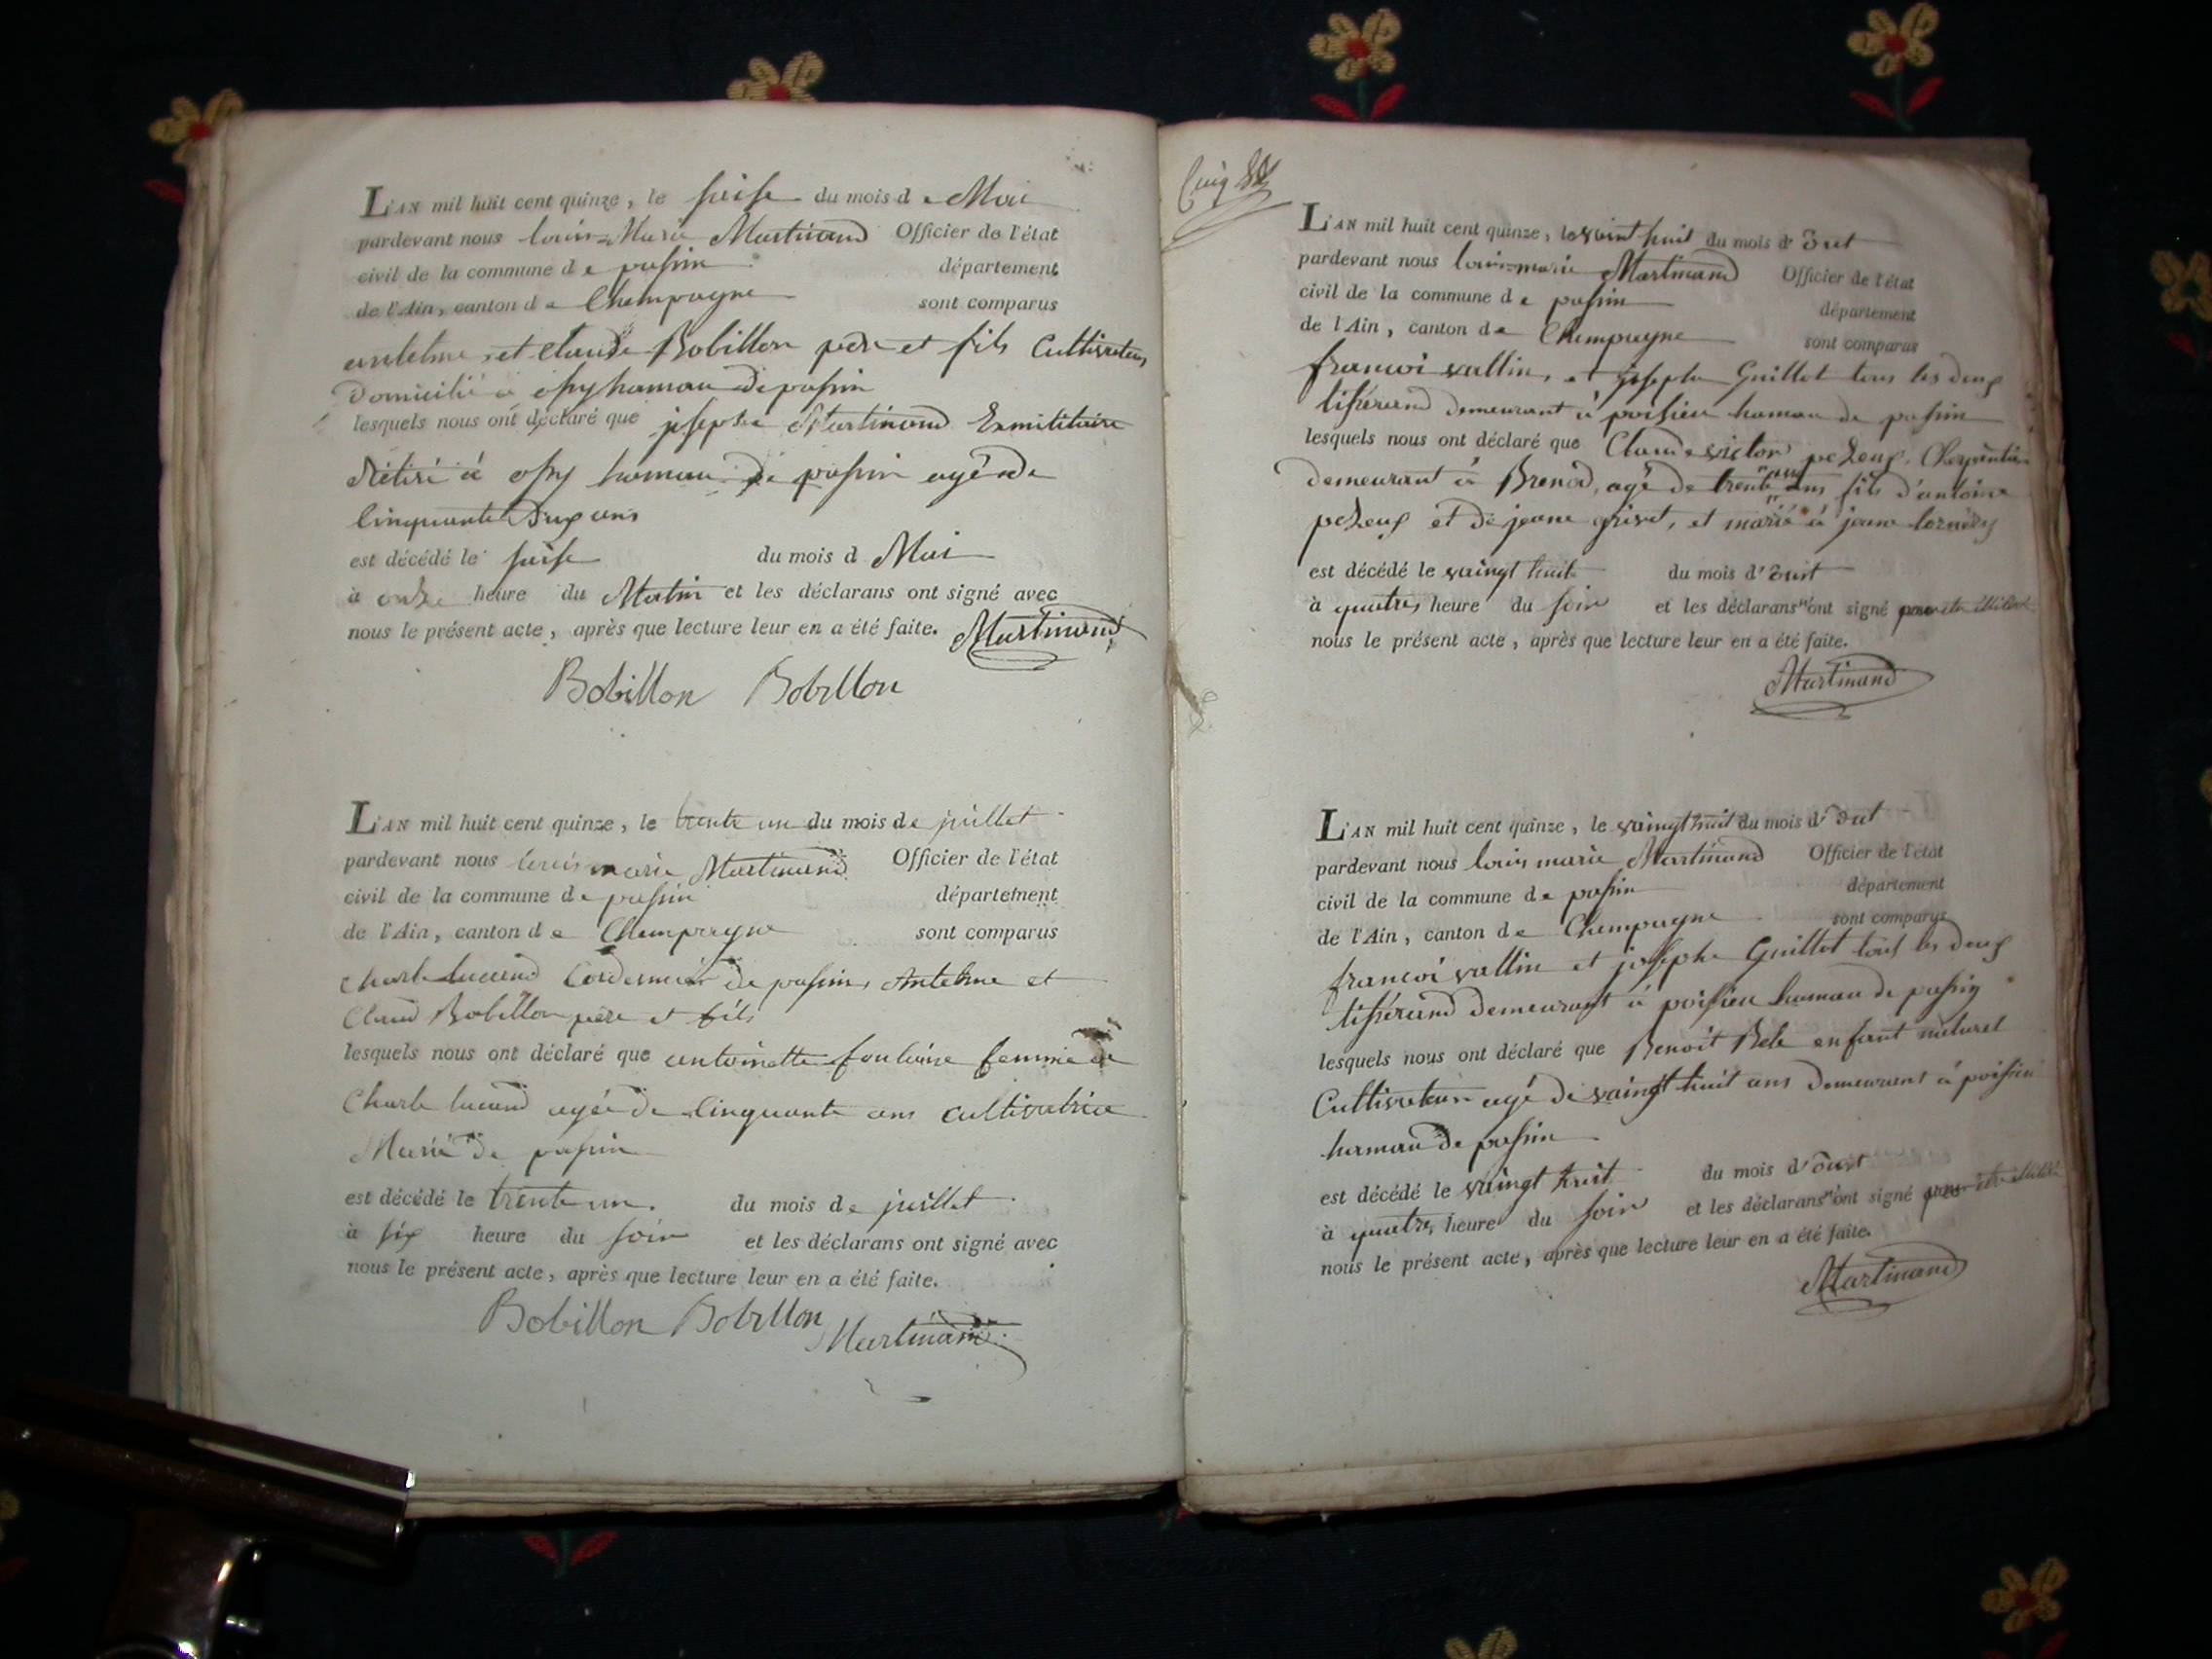 L'AN mil huit cent quinze, le seise du mois de Mai
pardevant nous louis=Marie Martinand Officier de l'état
civil de la commune de passin département
de l'Ain, canton de Champagne sont comparus
antelme, et claude Bobillon pere et fils Cultivateurs
Domicilié à ossy hamau de passin
lesquels nous ont déclaré que joseph Martinand Exmilitaire
Retiré à ossy hamau de passin agé de
Cinquante ans
est décédé le seise du mois de Mai
à onze heure du Matin et les déclarans ont signé avec
nous le présent acte, après que lecture leur en a été faite. Martinand
Bobillon Bobillon
L'AN mil huit cent quinze, le trente un du mois de juillet
pardevant nous louis marie Martinand Officier de l'état
civil de la commune de passin département
de l'Ain, canton de Champagne sont comparus
Charle lucand Cordonnier de passin, Antelme et
Claud Bobillon père et fils
lesquels nous ont déclaré que antoinette fontaine femme a
Charle lucand agée de Cinquante ans cultivatrice
Marié de passin
est décédé le trente un. du mois de juillet
à six heure du soir et les déclarans ont signé avec
nous le présent acte, après que lecture leur en a été faite.
Bobillon Bobillon Martinand
Cinq
L'AN mil huit cent quinze, le vaint huit du mois d'Out
pardevant nous louis=marie Martinand Officier de l'état
civil de la commune de passin département
de l'Ain, canton de Champagne sont comparus
francoi vallin, et joseph Guillot tous les deux
tisserand demeurant à poisieu hamau de passin
lesquels nous ont déclaré que Claude victor Charpentier
demeurant à Brenod, agé de trente ans fils d'antoine
et de jeane grivet, et marié à jeane
est décédé le vaingt huit du mois d'Oust
à quatres heure du soir et les déclarans n'ont signé pour etre illitéré
nous le présent acte, après que lecture leur en a été faite.
Martinand
L'AN mil huit cent quinze, le vaingt huit du mois d'Out
pardevant nous louis marie Martinand Officier de l'état
civil de la commune de passin département
de l'Ain, canton de Champagne sont comparus
francoi vallin et joseph Guillot tous les deux
tisserand demeurant à poisieu hamau de passin
lesquels nous ont déclaré que Benoit Bele enfant naturel
Cultivateur agé de vaingt huit ans demeurant à poisieu
hamau de passin
est décédé le vaingt huit du mois d'Oust
à quatres heure du soir et les déclarans n'ont signé pour etre illitéré
nous le présent acte, après que lecture leur en a été faite.
Martinand